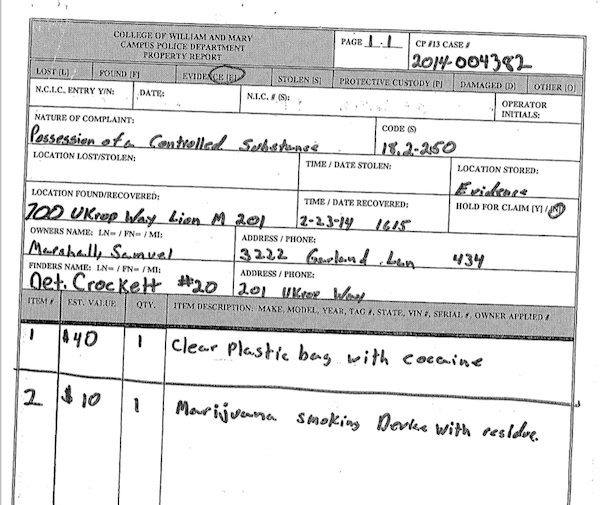 COLLEGE OF WILLIAM AND MARY
CAMPUS POLICE DEPARTMENT
PROPERTY REPORT
PAGE 1-1
CP #13 CASE #
2014-004382
LOST [L] FOUND [F] EVIDENCE [E] STOLEN [S] PROTECTIVE CUSTODY [P] DAMAGED [D] OTHER [O]
N.C.I.C. ENTRY Y/N: DATE: N.I.C. # (S): OPERATOR INITIALS:
NATURE OF COMPLAINT: CODE (S)
Possession of a Controlled Substance 18.2-250
LOCATION LOST/STOLEN: TIME / DATE STOLEN: LOCATION STORED:
Evidence
LOCATION FOUND/RECOVERED: TIME / DATE RECOVERED: HOLD FOR CLAIM [Y] / [N]
700 Ukrop Way Lion M 201 2-23-14 1615
OWNERS NAME: LN= / FN= / MI: ADDRESS / PHONE:
Marshall, Samuel 3222 Garland 434
FINDERS NAME: LN= / FN= / MI: ADDRESS / PHONE:
Det. Crockett #20 201 Ukrop Way
ITEM # EST. VALUE QTY. ITEM DESCRIPTION: MAKE, MODEL, YEAR, TAG #, STATE, VIN #, SERIAL #, OWNER APPLIED #
1 $40 1 Clear plastic bag with cocaine
2 $10 1 Marijuana smoking Device with residue.